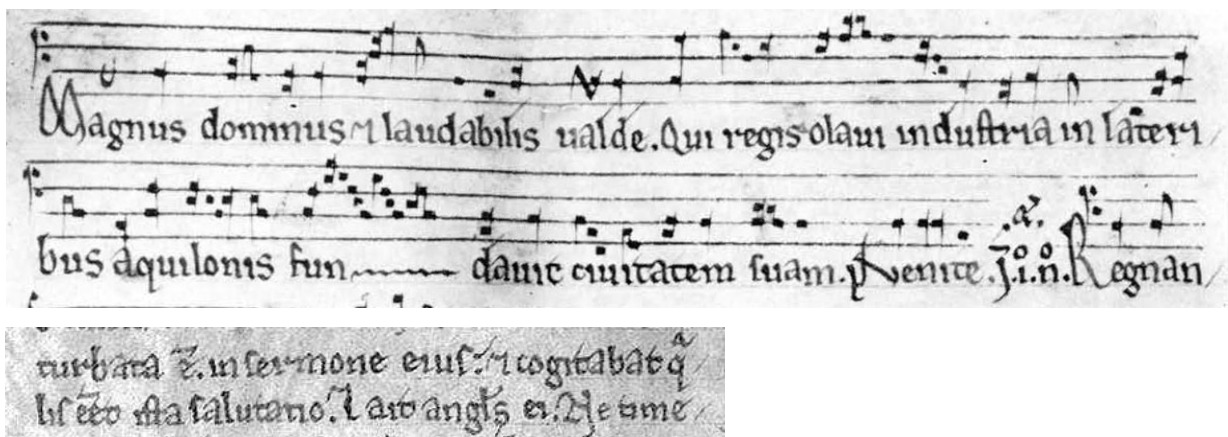 Magnus dominus ⁊ laudabilis ualde. Qui regis olaui industria in lateri
bus aquilonis fun dauit ciuitatem suam. Venite. .a. J. i. n. Regnan
turbata ē. in sermone eius. ⁊ cogitabat qa
lis eēt ista salutatio. ait angls ei. Ne time